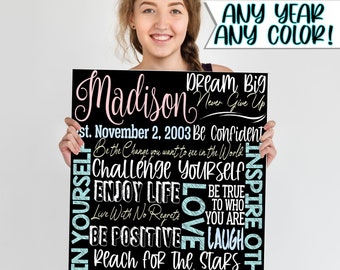 ANY YEAR
ANY COLOR!
Madison
Dream Big
Never Give Up
st. November 2, 2003
Be Confident
Be the Change you want to see in the World
Challenge Yourself
ENJOY LIFE
Live With No Regrets
BE POSITIVE
Reach for the Stars
LOVE
BE TRUE
TO WHO
YOU ARE
LAUGH
IN YOURSELF
INSPIRE OT